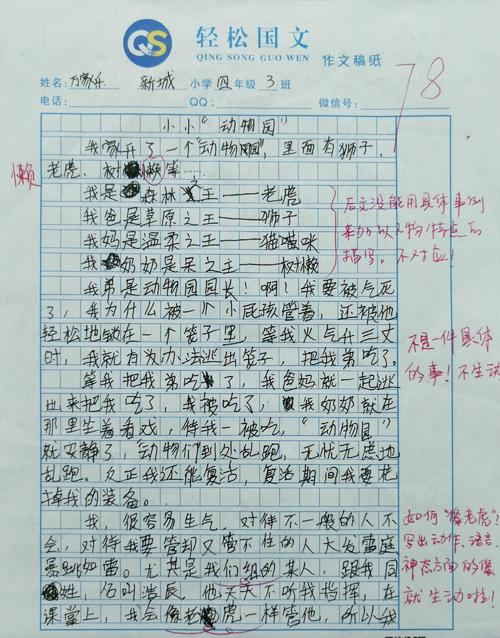 QS
轻松国文
QING SONG GUO WEN
作文稿纸
姓名: 万家乐 新城 小学 四 年级 3 班
78
电话: QQ: 微信号:
小小“动物园”
我家开了一个“动物园”，里面有狮子，
懒
老虎、树懒等……
我是森林之王——老虎
我爸是草原之王——狮子
我妈是温柔之王——猫喵咪
我奶奶是呆之王——树懒
后文没能用具体事例
来加以人物特点的
描写。不对应！
我弟是动物园园长！啊！我要被气死
了，我为什么被一个小屁孩管着，还被他
轻松地锁在一个笼子里，等我火气升三丈
时，我就有办法逃出笼子，把我弟吃了。
不是一件具体
的事！不生动
等我把我弟吃了，我爸妈就一起逃
出来把我吃了，我被吃了，我奶奶就在
那里坐着看戏，待我一被吃，“动物园”
就安静了，动物们到处乱跑，无忧无虑地
乱跑。反正我还能复活，复活期间我要花
掉我的装备。
我，很容易生气，对待不一般的人不
会，对待我要管却又管不住的人大发雷庭
暴跳如雷。尤其是我们组的某人，跟我同
姓，名叫浩辰，他天天不听我指挥，在
课堂上，我会像老虎一样管他，所以我
如何“像老虎”？
写出动作、语言、
神态方面的
就生动啦！